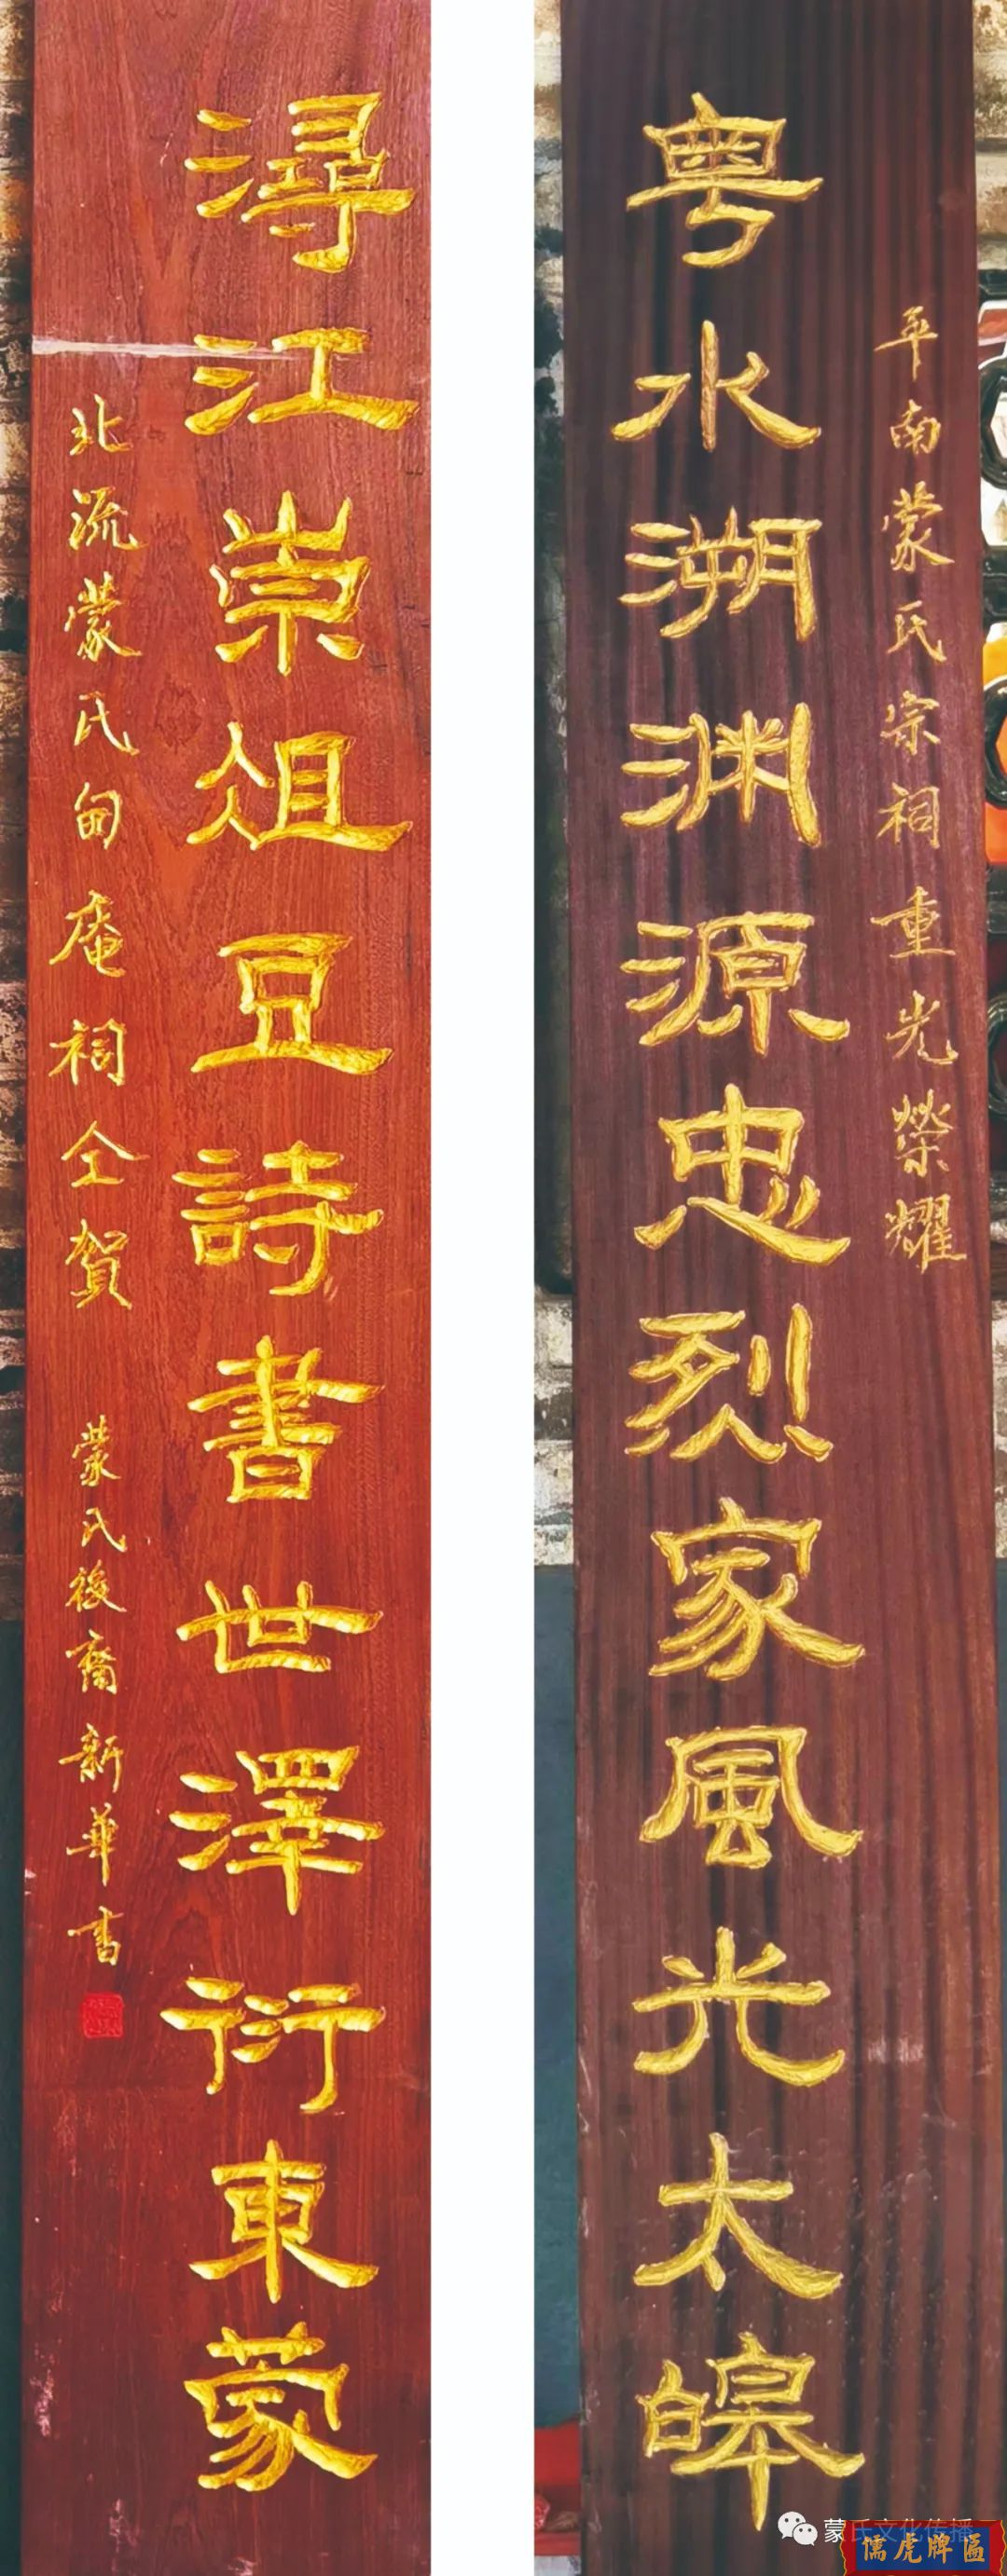 平南蒙氏宗祠重光榮耀
粤水溯渊源忠烈家風光太皞
潯江崇俎豆詩書世澤衍東蒙
北流蒙氏甸庵祠仝賀
蒙氏後裔新華書
蒙氏文化传播
儒虎牌匾